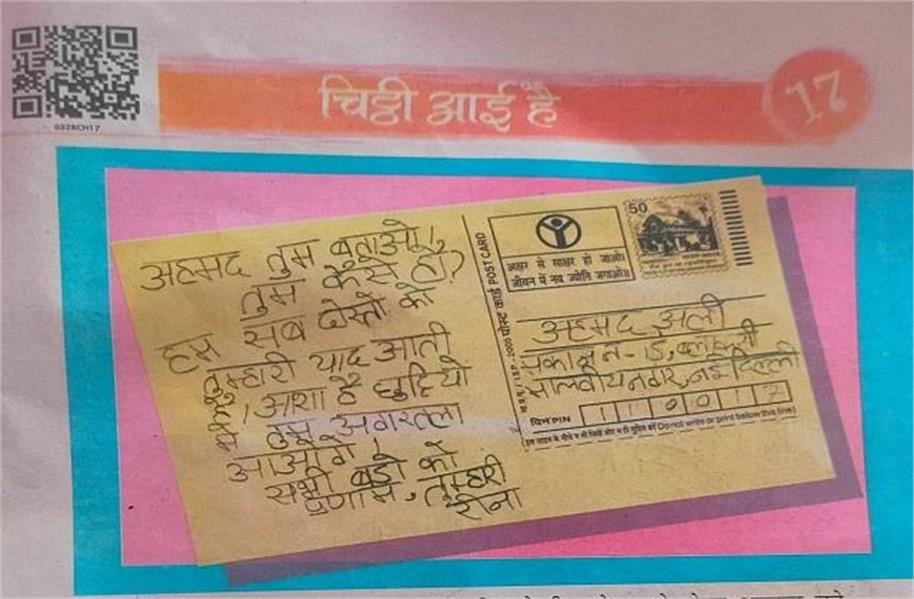 0328CH17
चिट्ठी आई है
17
अहमद तुम बताओ,
तुम कैसे हो?
हम सब दोस्तो को
तुम्हारी याद आती
है। आशा है छुट्टियो
तुम अगरतला
आओगे।
सभी बडो को
प्रणाम, तुम्हारी
रीना
पोस्ट कार्ड POST CARD
अक्षर से साक्षर हो जाओ।
जीवन में नव ज्योति जगाओ॥
50
अहमद अली
मकान न - 15, ब्लाक सी
मालवीय नगर, नई दिल्ली
पिन PIN 110017
(Do not write or print below this line)